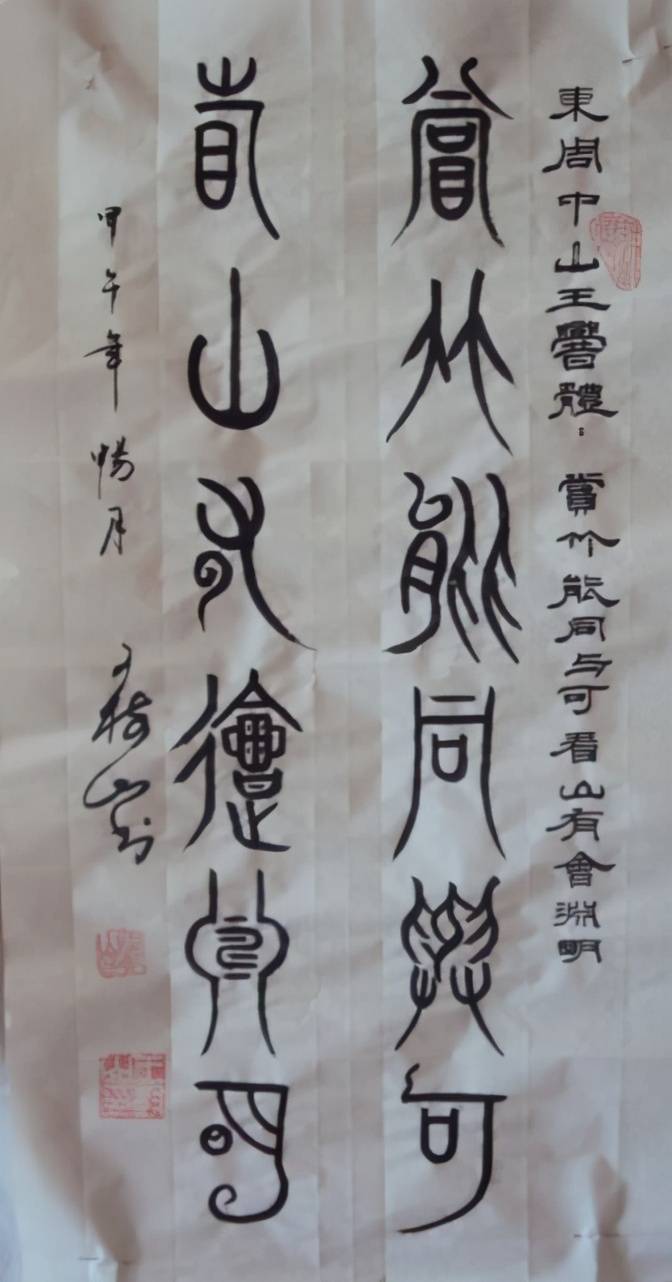 東周中山王嚳體：賞竹能同与可看山有會淵明
賞竹能同與可
看山有會淵明
甲午年暢月
樹山書